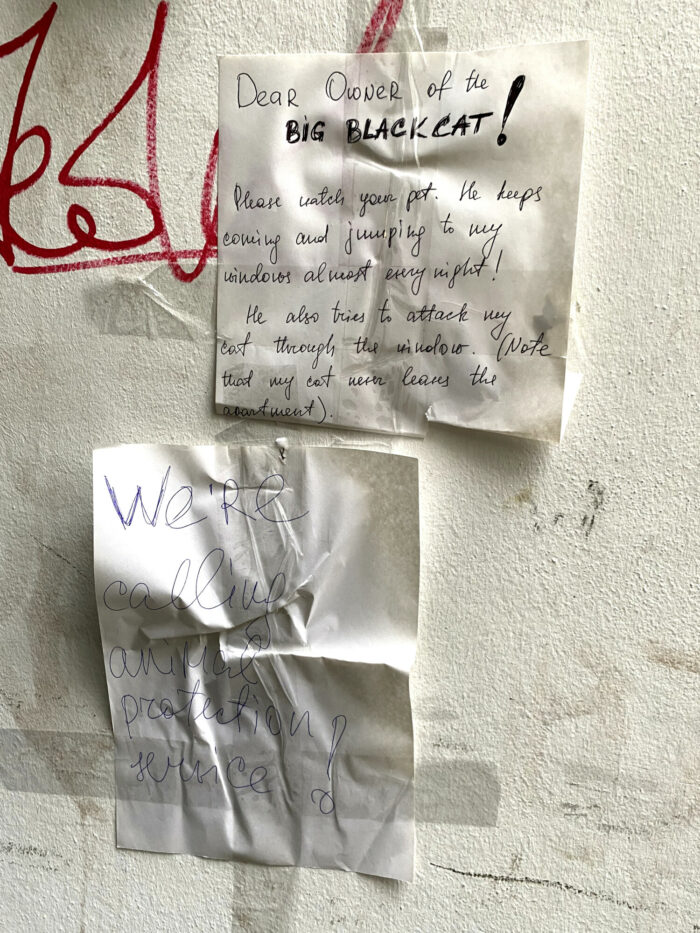 Dear Owner of the
BIG BLACK CAT!
Please watch your pet. He keeps
coming and jumping to my
windows almost every night!
He also tries to attack my
cat through the window. (Note
that my cat never leaves the
apartment).
We're
calling
animal
protection
service!